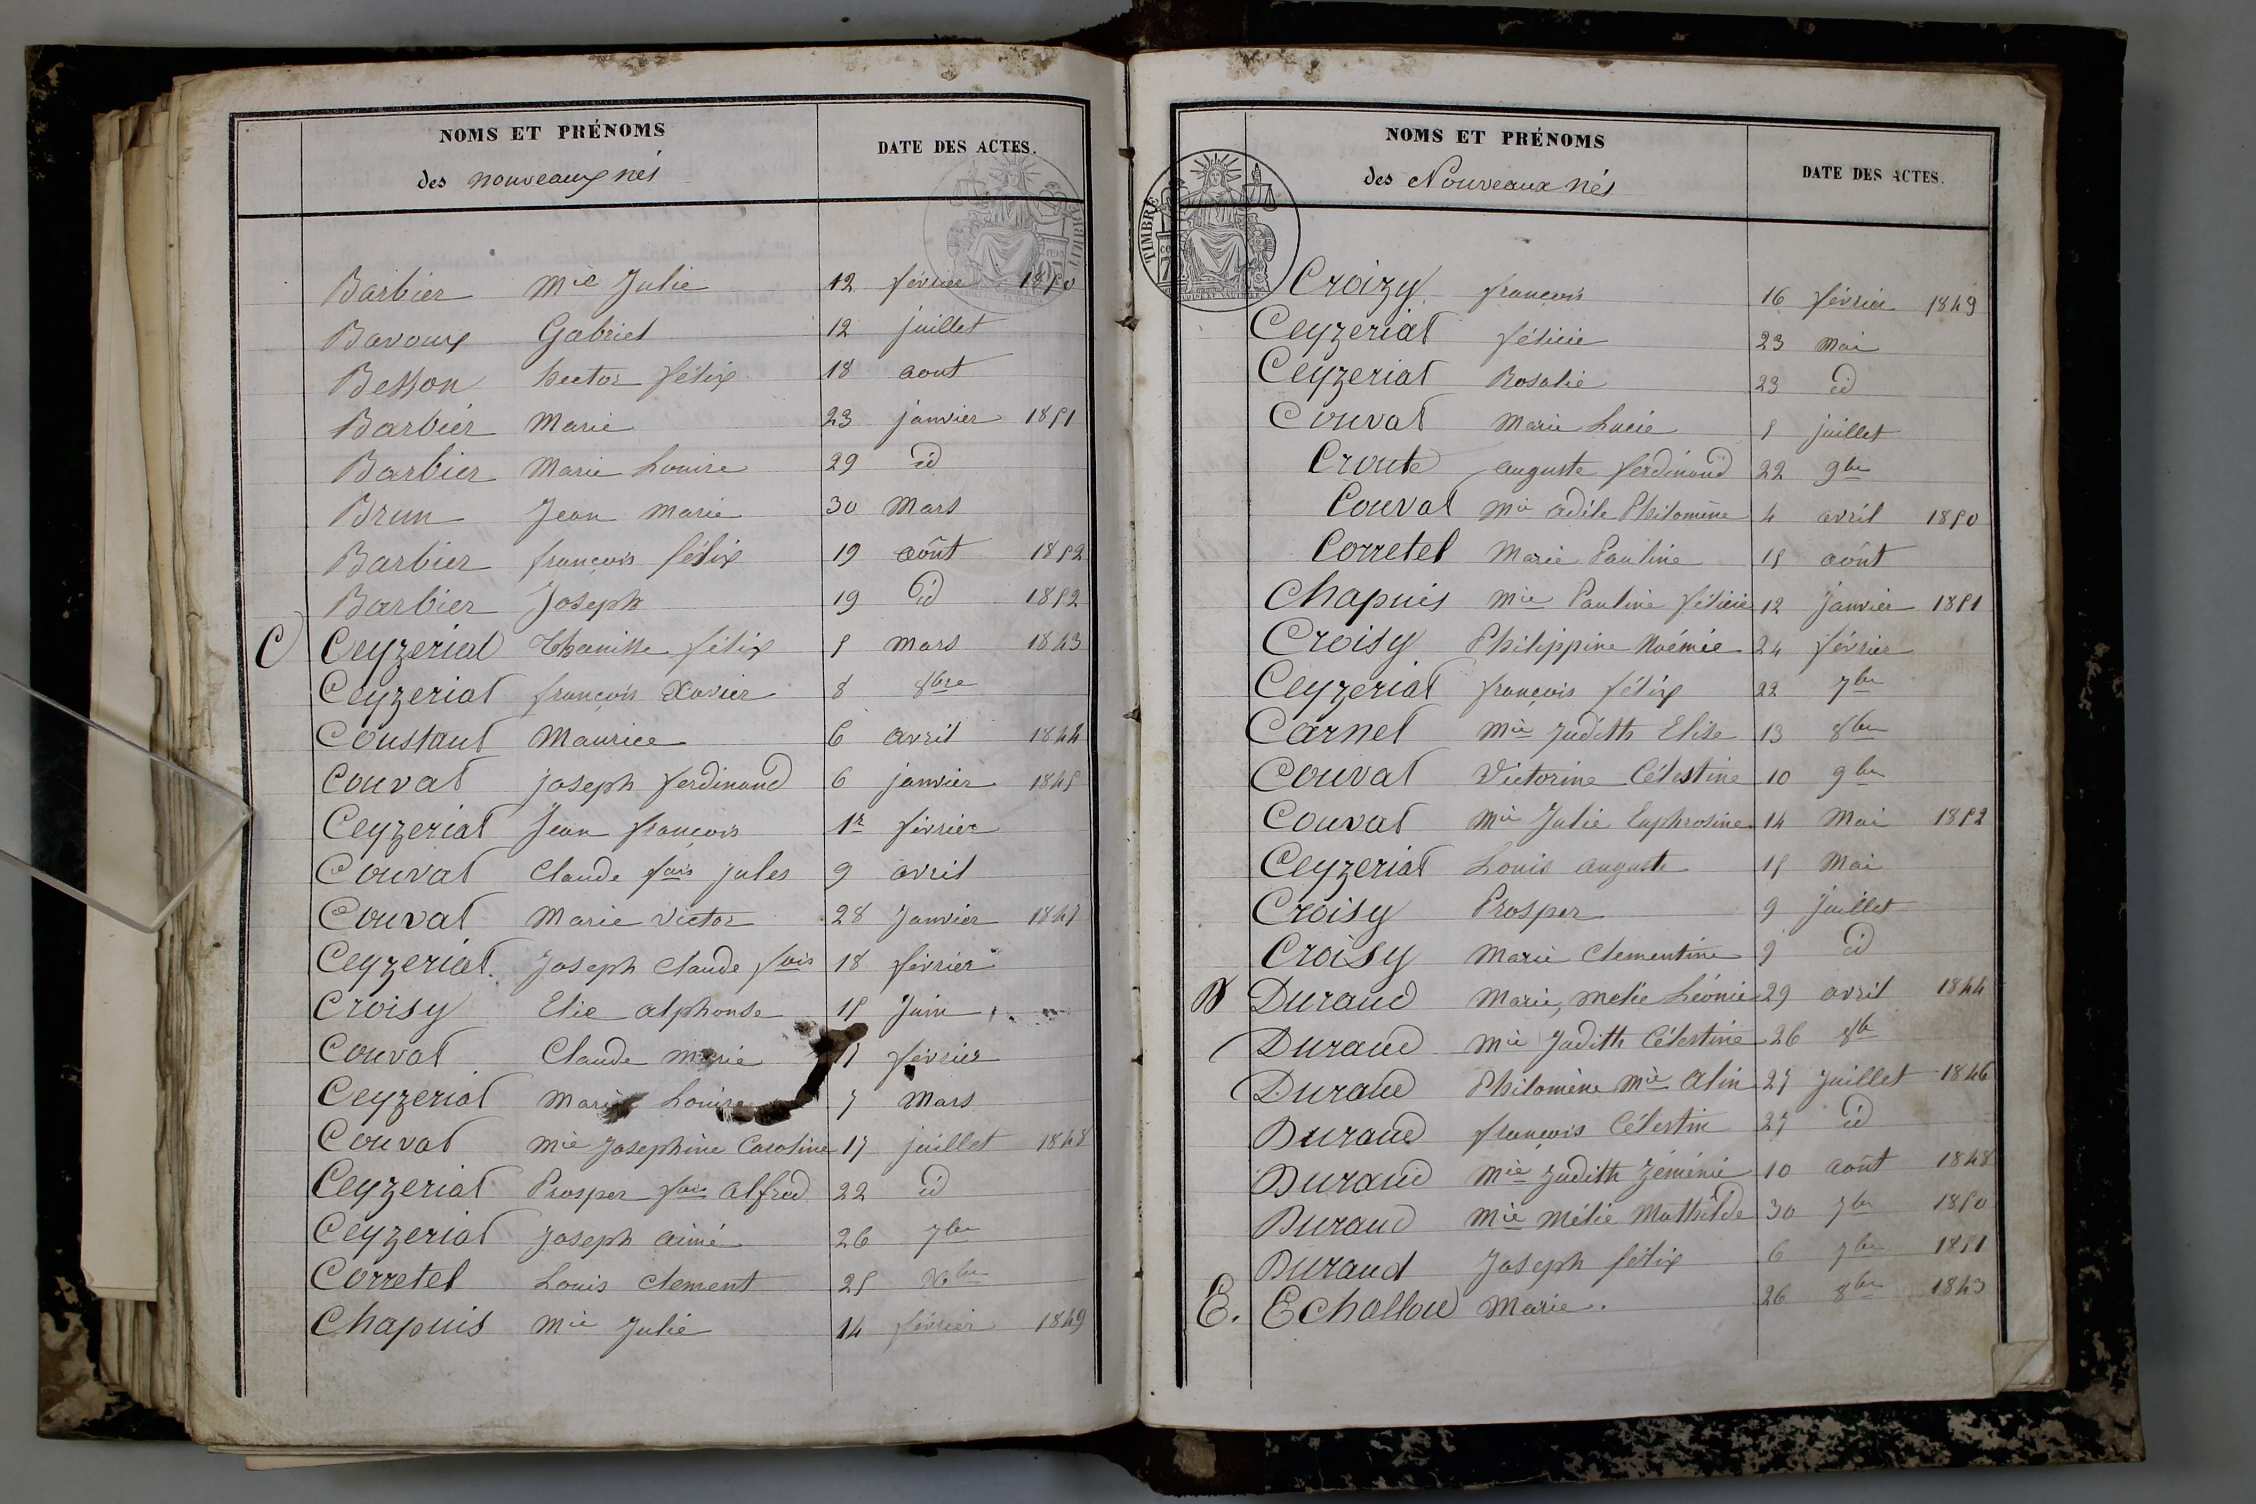 NOMS ET PRÉNOMS
des nouveaux nés
DATE DES ACTES.
Barbier Mie Julie 12 février 1850
Bavoux Gabriel 12 juillet
Besson hector félix 18 aout
Barbier Marie 23 janvier 1851
Barbier Marie Louise 29 id
Brun Jean Marie 30 Mars
Barbier françois félix 19 aôut 1852
Barbier Joseph 19 id 1852
C Ceyzeriat félix 5 Mars 1843
Ceyzeriat françois Xavier 8 8bre
Constant Maurice 6 avril 1844
Couvat joseph ferdinand 6 janvier 1845
Ceyzeriat Jean françois 1r février
Couvat Claude fois jules 9 avril
Couvat Marie Victor 28 Janvier 1847
Ceyzeriat. Joseph Claude fois 18 février
Croisy Elie alphonse 15 Juin
Couvat Claude Marie février
Ceyzeriat Marie Louise 7 Mars
Couvat Mie Josephine Caroline 17 juillet 1848
Ceyzeriat Prosper fois alfred 22 id
Ceyzeriat Joseph aimé 26 7bre
Corretel Louis Clement 25 Xbre
Chapuis Mie Julie 14 février 1849
NOMS ET PRÉNOMS
des Nouveaux nés
DATE DES ACTES.
TIMBRE
Croizy françois 16 février 1849
Ceyzeriat félicie 23 Mai
Ceyzeriat Rosalie 23 id
Couvat Marie Lucie 5 juillet
Croute auguste ferdinand 22 9bre
Couvat Mie adèle Philomène 4 avril 1850
Corretel Marie Pauline 15 aôut
Chapuis Mie Pauline félicie 12 Janvier 1851
Croisy Philippine Noémie 24 février
Ceyzeriat françois félix 22 7bre
Carnet Mie Judith Elise 13 8bre
Couvat Victorine Célestine 10 9bre
Couvat Mie Julie Euphrosine 14 Mai 1852
Ceyzeriat Louis auguste 15 Mai
Croisy Prosper 9 Juillet
Croisy Marie Clementine 9 id
D Durand Marie, Melie Léonie 29 avril 1844
Durand Mie Judith Célestine 26 8bre
Durand Philomène Mie Alin 27 Juillet 1846
Durand françois Célestin 27 id
Durand Mie Judith Zéménie 10 août 1848
Durand Mie Mélie Mathilde 30 7bre 1850
Durand Joseph félix 6 7bre 1851
E. Echallou Marie. 26 8bre 1843